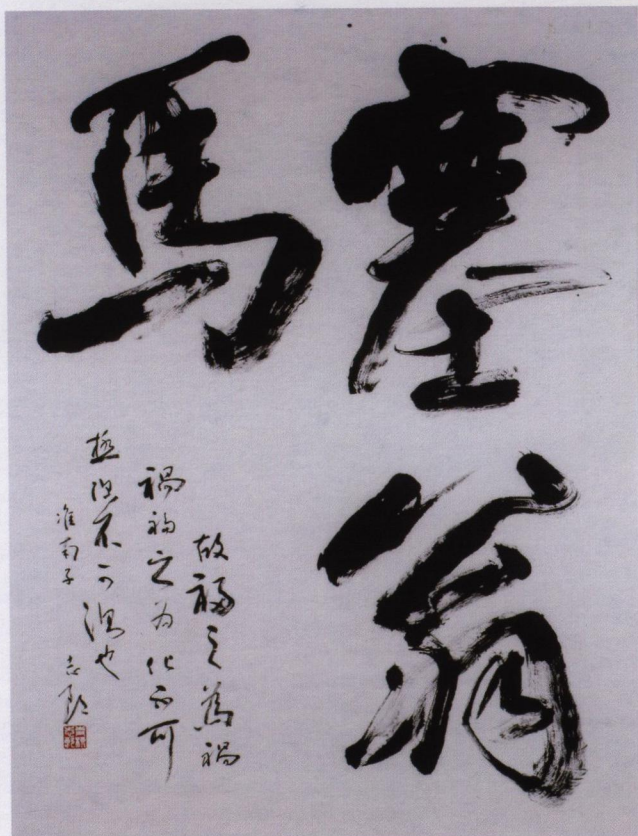 塞翁
馬
故福之為禍
禍福之为化不可
極深不可測也
淮南子